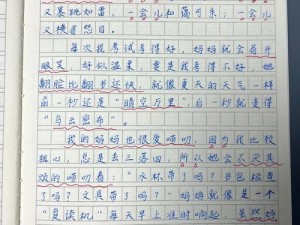 又暴跳如雷，一会儿和蔼可亲，一会儿
又横眉怒目。
每次我考试考得好，妈妈就会眉开
眼笑，好似温柔，要是我考得不好，她
翻脸比翻书还快，就像夏天的天气一样
前一秒还是“晴空万里”，后一秒就变得
“乌云密布”。
我的妈妈也很爱唠叨，因为我比较
粗心，总是丢三落四，所以她会不厌其
烦的唠叨着：“水杯带了吗？书包检查
了吗？文具带了吗？”妈妈就像是一个
“复读机”每天早上准时响起，虽然妈